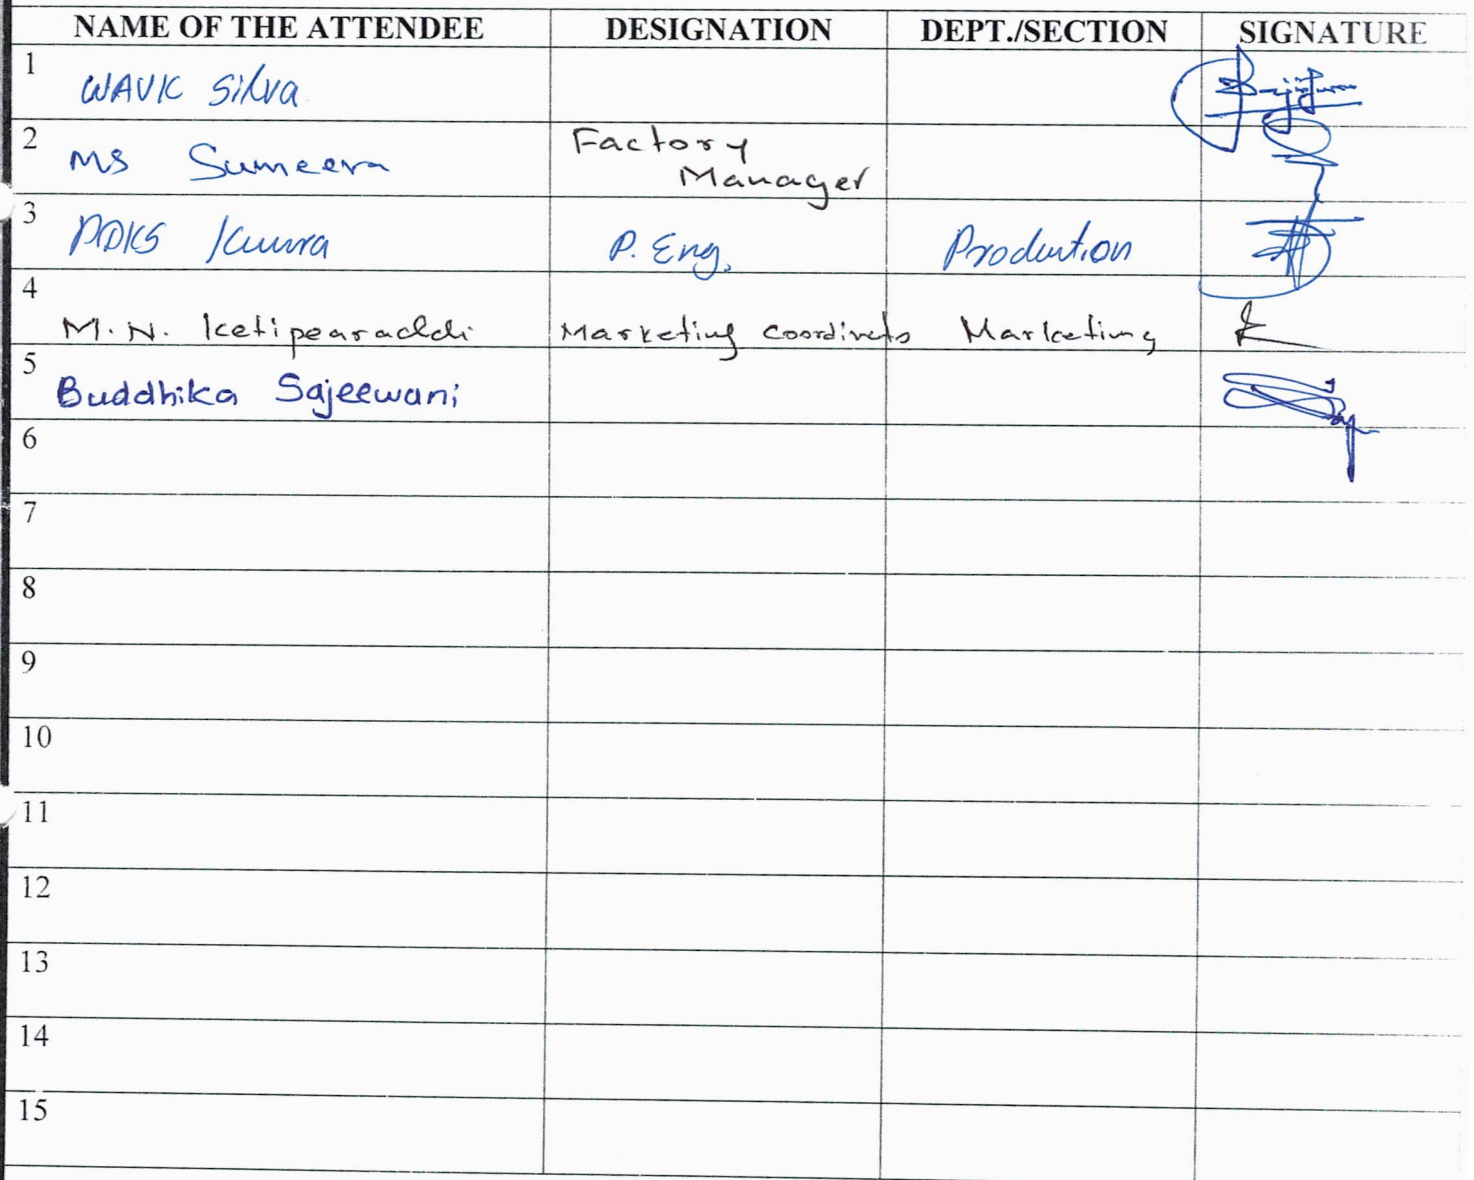 NAME OF THE ATTENDEE DESIGNATION DEPT./SECTION SIGNATURE
1 WAVK Silva
2 MS Sumeera Factory
Manager
3 PDKS P. Eng. Production
4
M. N. Marketing Marketing
5
Buddhika Sajeewani
6
7
8
9
10
11
12
13
14
15